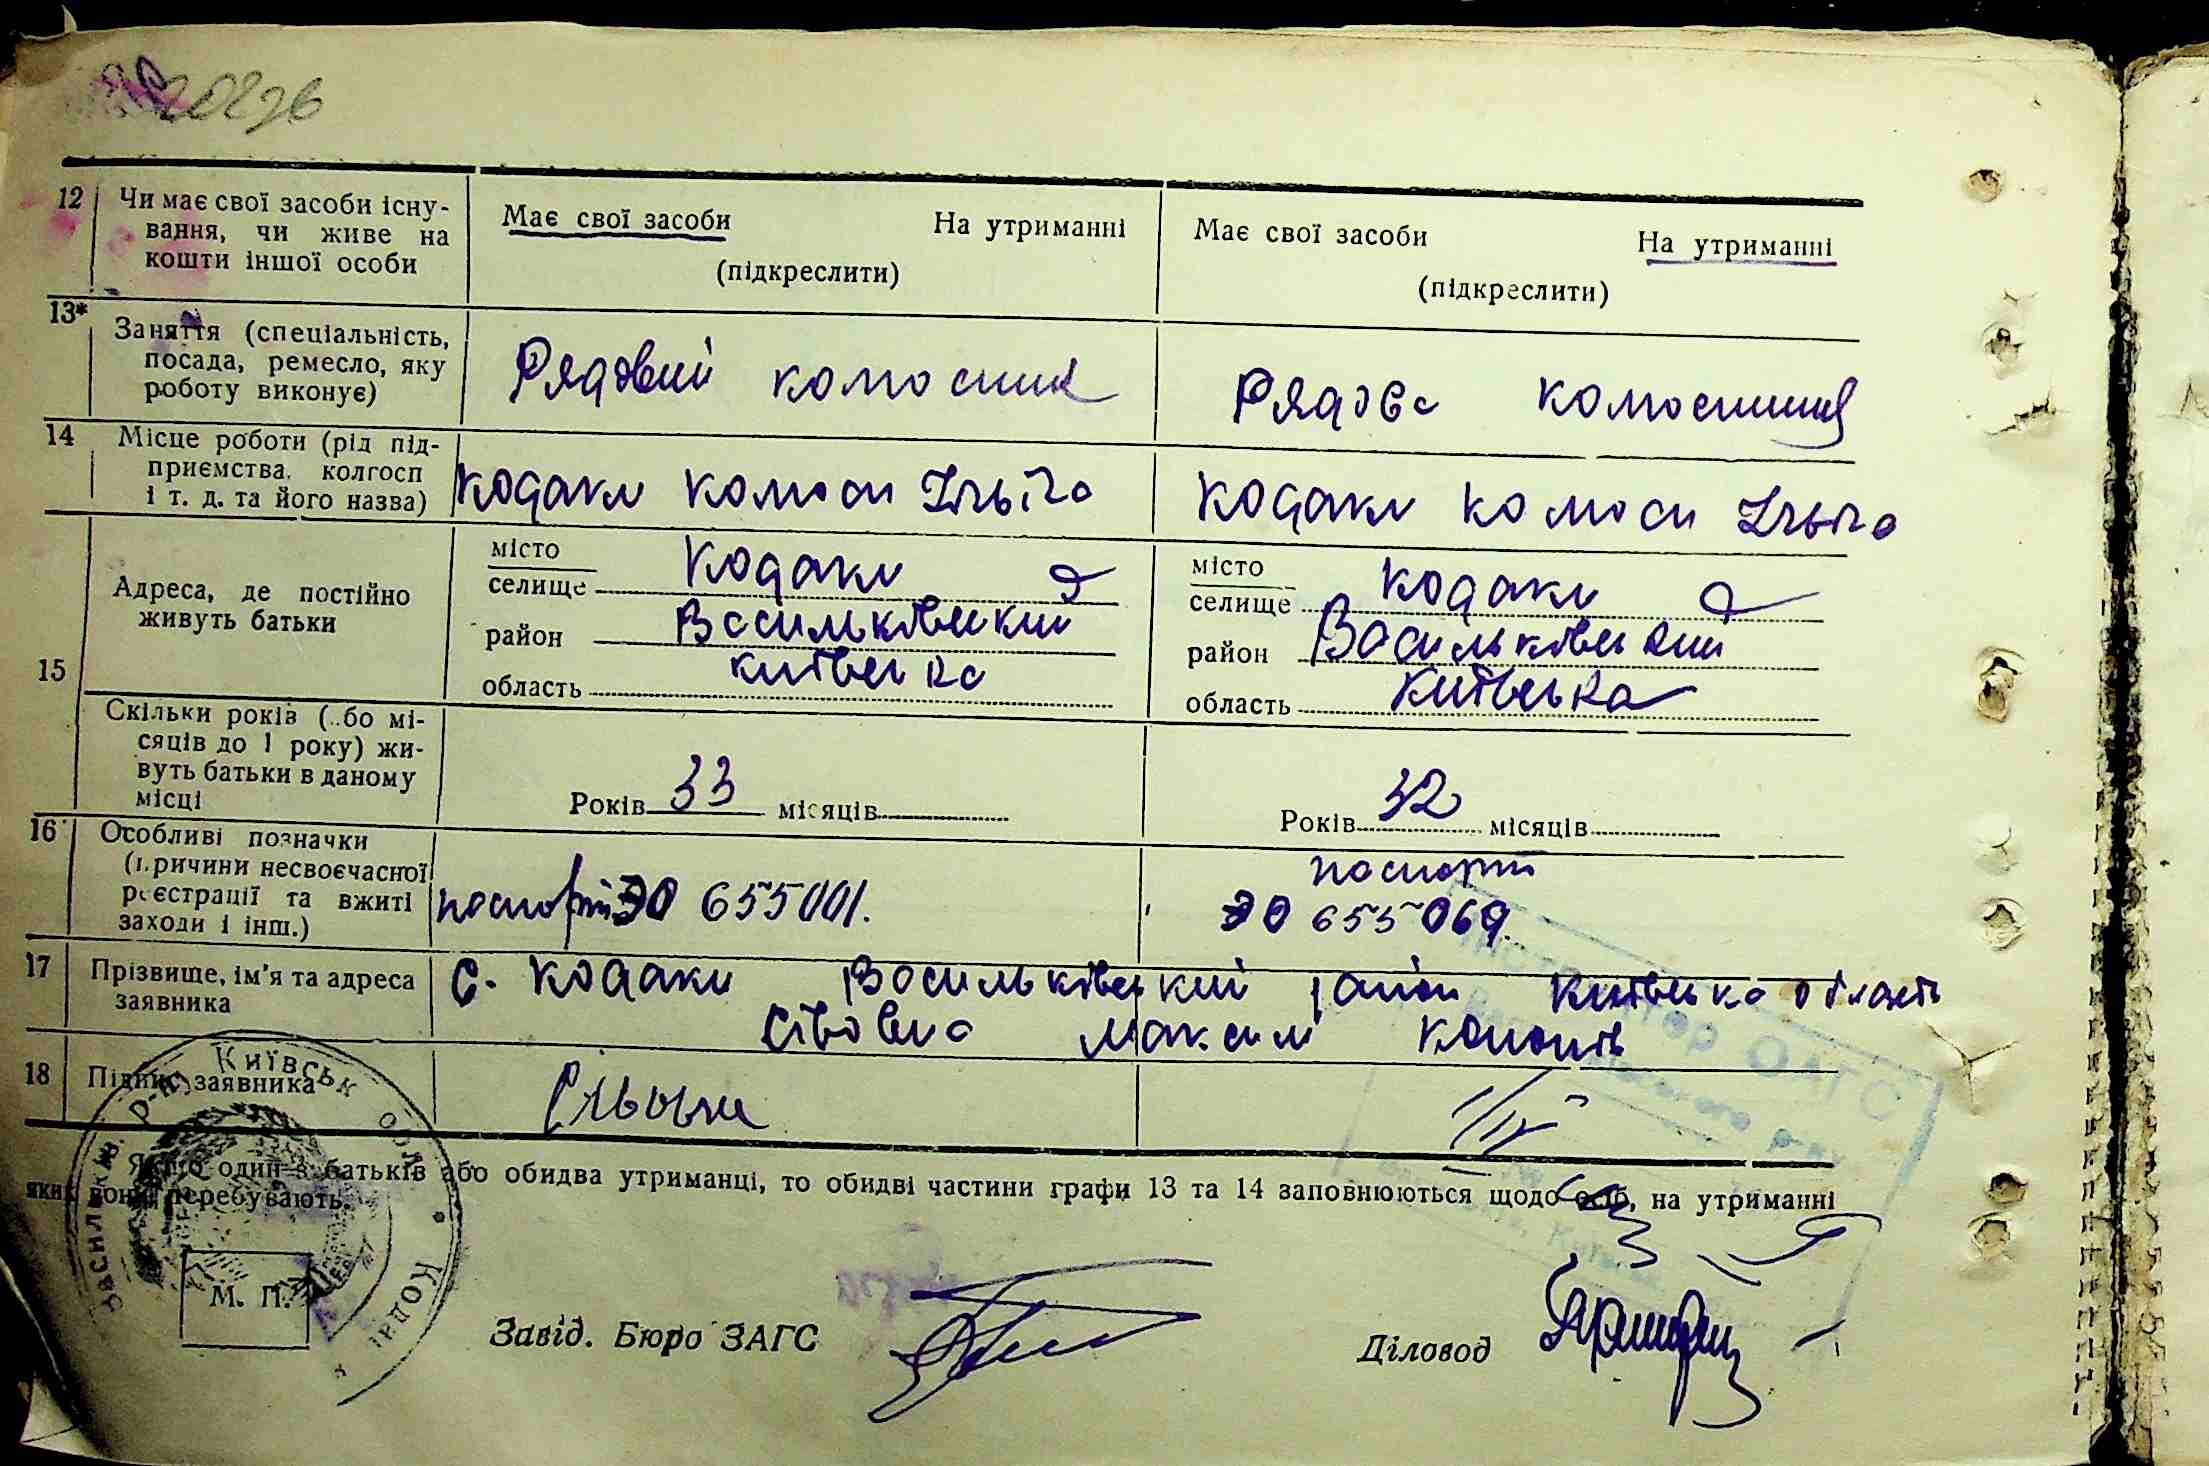 20226
12 Чи має свої засоби існу-
вання, чи живе на
кошти іншої особи
Має свої засоби На утриманні
(підкреслити)
Має свої засоби На утриманні
(підкреслити)
13* Заняття (спеціальність,
посада, ремесло, яку
роботу виконує)
Рядовий колгоспник
Рядова колгоспниця
14 Місце роботи (рід під-
приємства, колгосп
і т. д. та його назва)
Кодаки колгосп Ілліча
Кодаки колгосп Ілліча
15 Адреса, де постійно
живуть батьки
місто
селище Кодаки
район Васильківський
область Київська
місто
селище Кодаки
район Васильківський
область Київська
Скільки років (або мі-
сяців до 1 року) жи-
вуть батьки в даному
місці
Років 33 місяців
Років 32 місяців
16 Особливі позначки
(причини несвоєчасної
реєстрації та вжиті
заходи і інш.)
паспорт ЭО 655001.
паспорт
ЭО 655069.
17 Прізвище, ім'я та адреса
заявника
с. Кодаки Васильківський район Київська область
Максим
18 Підпис заявника
Якщо один з батьків або обидва утриманці, то обидві частини графи 13 та 14 заповнюються щодо осіб, на утриманні
яких вони перебувають.
Васильків. р-ну Київськ обл. * Кодаі
М. П.
Інспектор ОАГС
р-ну
Завід. Бюро ЗАГС
Діловод